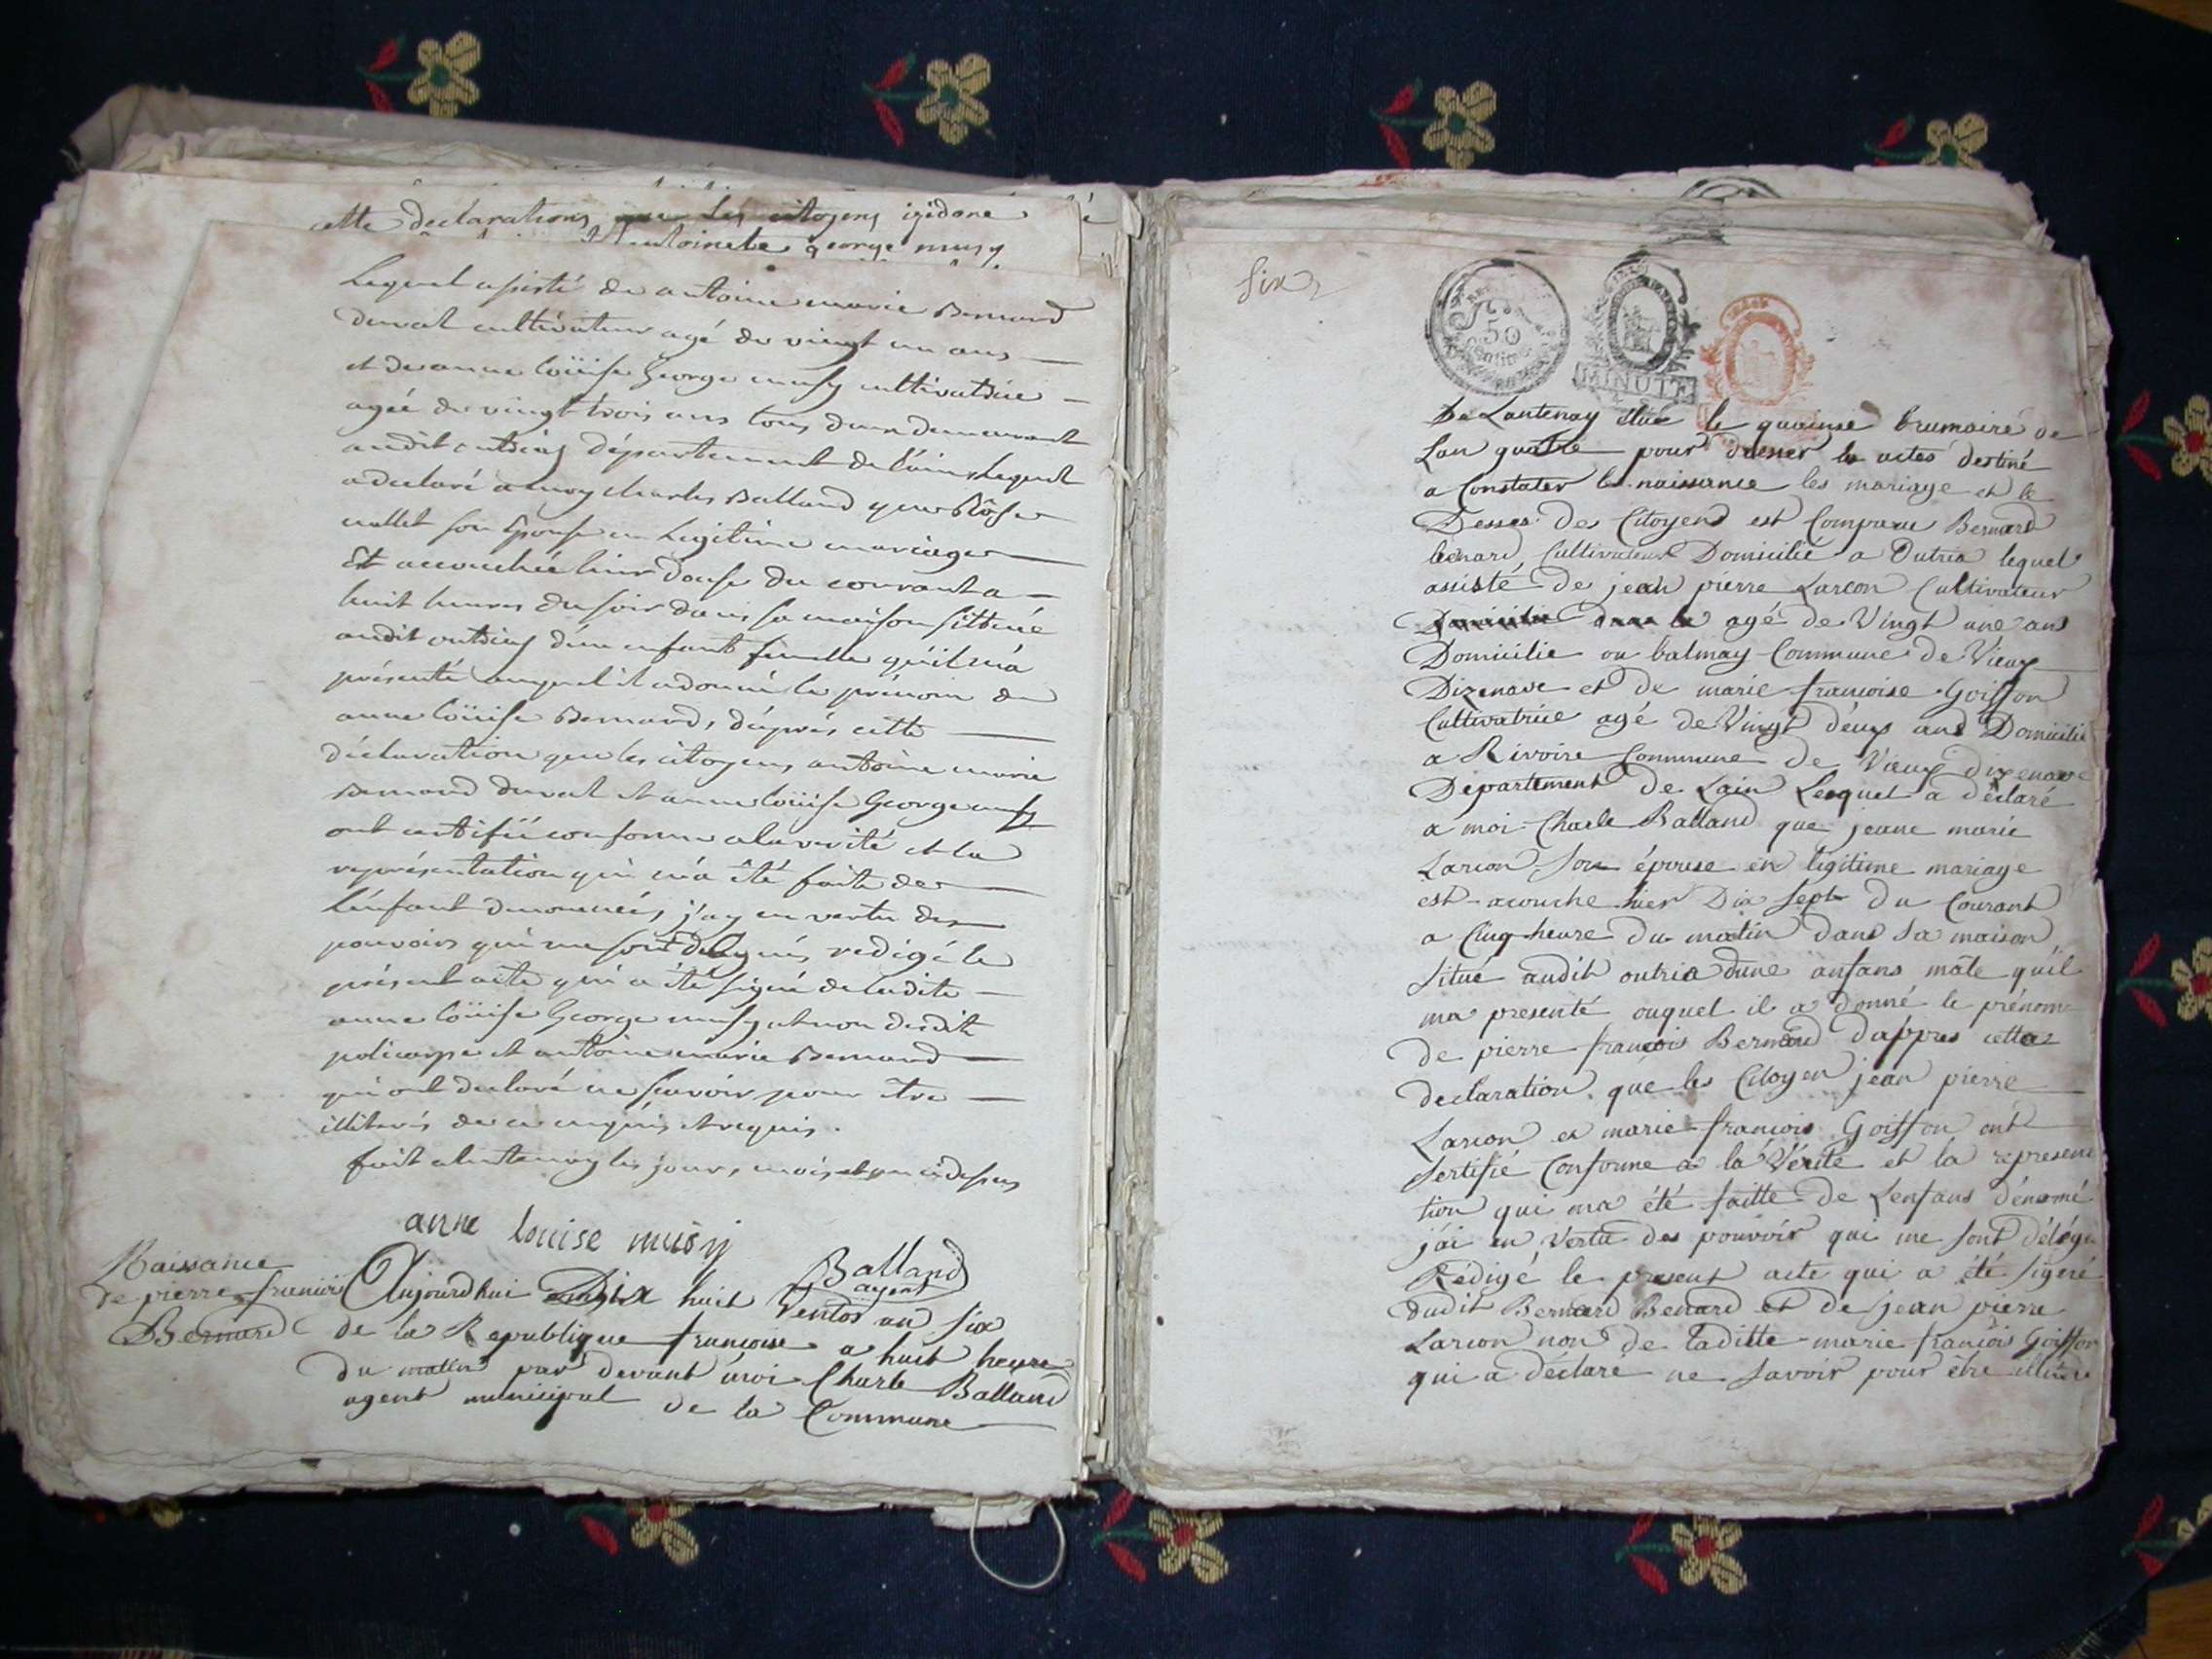 cette declarations que les citoyens izidore
antoinete george musy
Lequel asisté de antoine marie Bernard
duval cultivateur agé de vingt un ans
et de anne loüise George musy cultivatrice
agée de vingt trois ans tous deux demeurant
audit outriaz département de l'ain, Lequel
a declaré a moy charles Balland que Rôse
mallet son Epouse en Legitime mariage
Et accouchée hier douse du courant a
huit heures du soir dans sa maison sittuée
audit outriaz d'un enfant femelle qu'il m'a
présenté auquel il a donné le prénom de
anne loüise Bernard, d'après cette
déclaration que les citoyens antoine marie
Bernard duval et anne loüise George musy
ont certifié conforme a la verité et la
représentation qui m'a été faite de
l'énfant denommé, j'ay en vertu des
pouvoirs qui me sont delegués redigé le
présent acte qui a été signé de ladite
anne loüise George musy et non desdits
policarpe et antoine marie Bernard
qui ont declaré ne scavoir pour être
illiterés de ce enquis et requis.
fait a lantenay les jour, mois et an cy dessus
anne louise musy
Balland
agent
Naissance
de pierre francois
Bernard
Aujourdhui Dix huit Ventos an six
de la Republique francoise a huit heure
du matin par devant moi Charle Balland
agent municipal de la Commune
six
50
Centimes
MINUTE
De Lantenay élue le quainse brumaire de
Lan quatre pour dresser les actes destiné
a Constater les naissance les mariage et le
Desses des Citoyens est Comparu Bernard
benard Cultivateur Domicilié a Outria lequel
assisté de jean pierre Larcon Cultivateur
agé de Vingt une ans
Domicilie au balmay Commune de Vieux
Dizenave et de marie francoise Goiffon
Cultivatrice agé de Vingt deux ans Domicilié
a Rivoire Commune de Vieux dizenave
Département de Lain Lesquel a déclaré
a moi Charle Balland que jeane marie
Larcon son épouse en legitime mariage
est acouche hier Dix sept du Courant
a Cinq heure du matin dans sa maison
situe audit outria dune anfans mâle quil
ma presenté auquel il a donné le prénom
de pierre francois Bernard dappres cette
declaration que les Citoyen jean pierre
Larcon et marie francois Goiffon ont
sertifié Conforme a la Vérité et la represent
tion qui ma été faitte de Lenfans dénomé
j'ai en Vertu des pouvoir qui me sont délégu
Rédigé le present acte qui a été signé
dudit Bernard Benard et de jean pierre
Larcon non de laditte marie francois Goiffon
qui a déclaré ne savoir pour être illitéré